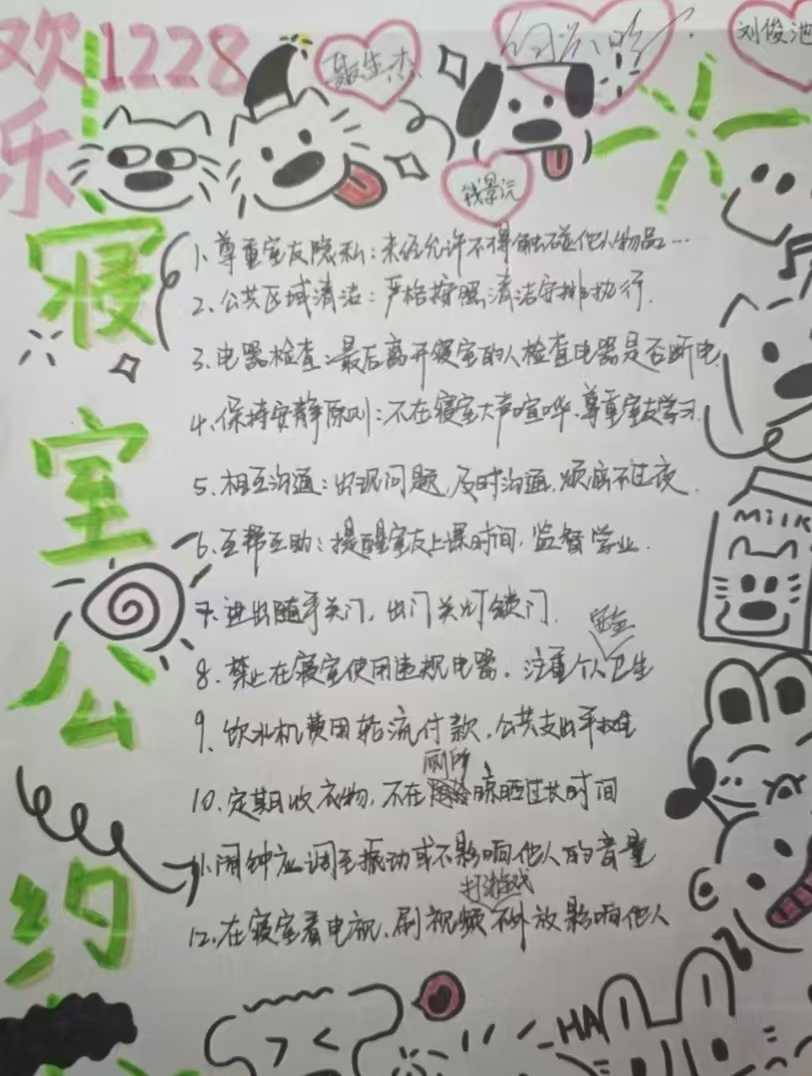 欢1228
乐
刘俊池
钱景沅
寝室公约
1、尊重室友隐私：未经允许不得触碰他人物品…
2、公共区域清洁：严格按照清洁安排执行.
3、电器检查：最后离开寝室的人检查电器是否断电
4、保持安静原则：不在寝室大声喧哗、尊重室友学习.
5、相互沟通：出现问题，及时沟通，烦恼不过夜.
6、互帮互助：提醒室友上课时间，监督学业.
7、进出随手关门，出门关灯锁门.
8、禁止在寝室使用违规电器，注重个人卫生
9、饮水机费用轮流付款，公共支出平摊
10、定期收衣物，不在厕所晾晒过长时间
11、闹钟应调至振动或不影响他人的音量
12、在寝室看电视、刷视频打游戏不外放影响他人
Milk
HA